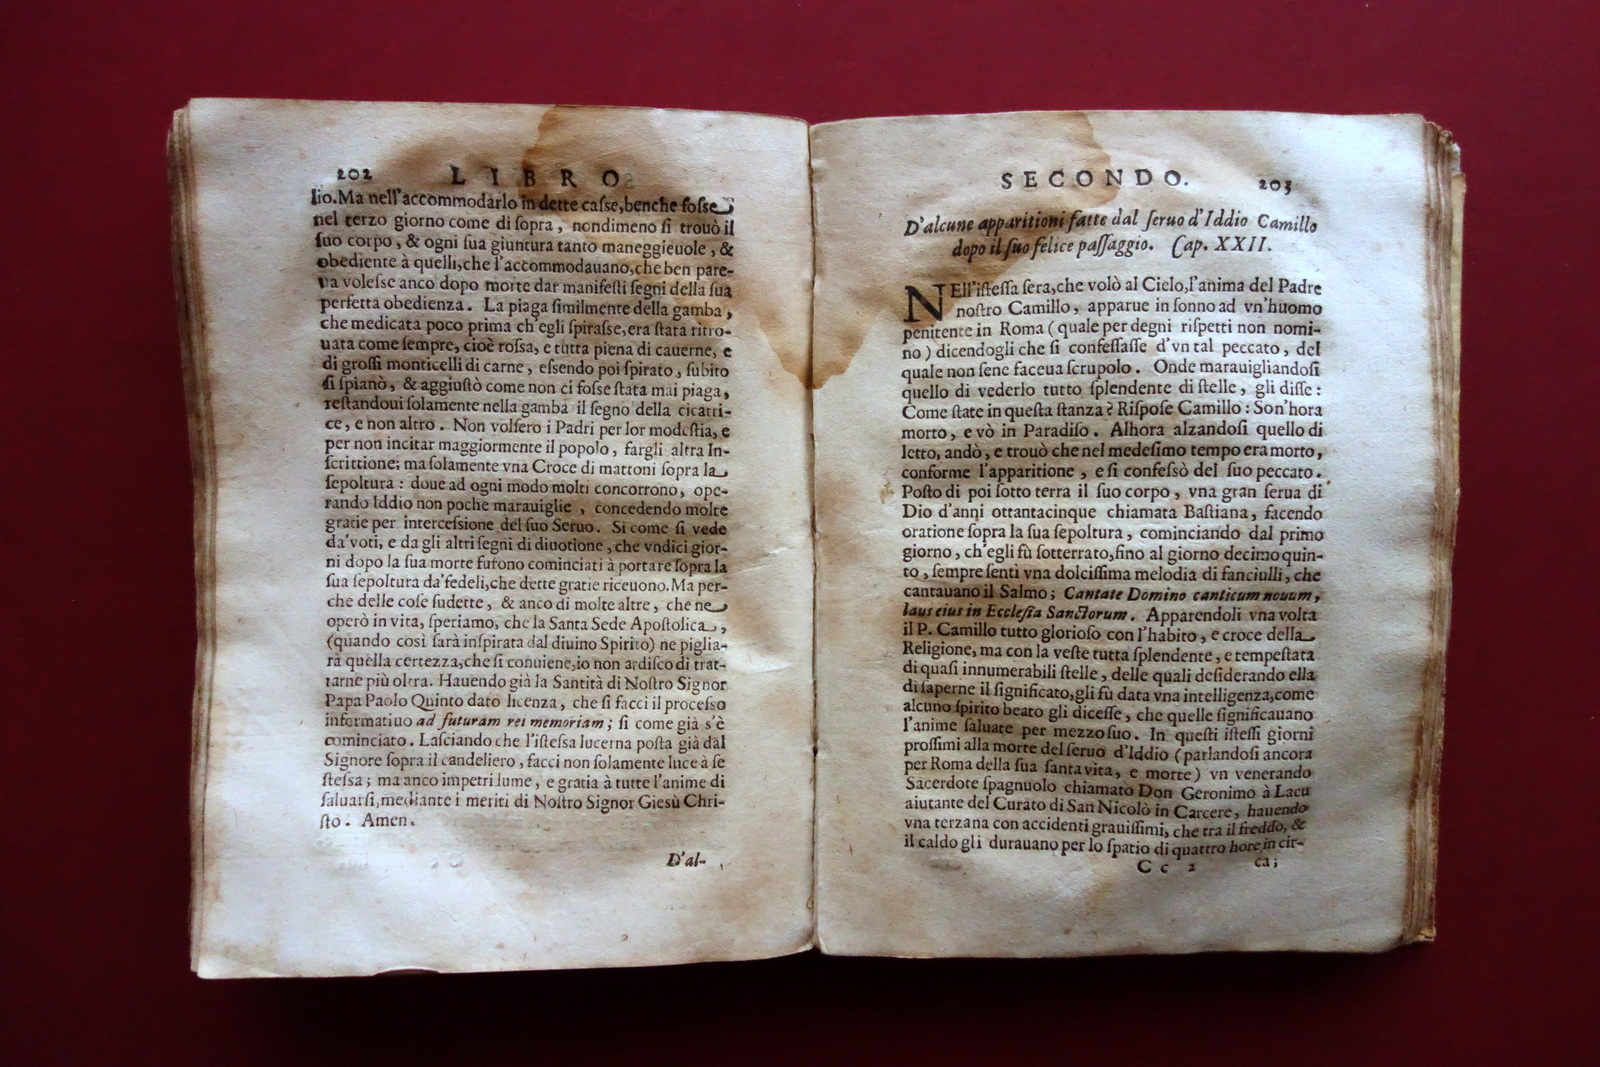 202 LIBRO
lio. Ma nell'accommodarlo in dette casse, benche fosse
nel terzo giorno come di sopra, nondimeno si trouò il
suo corpo, & ogni sua giuntura tanto maneggieuole, &
obediente à quelli, che l'accommodauano, che ben pare-
ua volesse anco dopo morte dar manifesti segni della sua
perfetta obedienza. La piaga similmente della gamba,
che medicata poco prima ch'egli spirasse, era stata ritro-
uata come sempre, cioè rossa, e tutta piena di cauerne, e
di grossi monticelli di carne, essendo poi spirato, subito
si spianò, & aggiustò come non ci fosse stata mai piaga,
restandoui solamente nella gamba il segno della cicatri-
ce, e non altro. Non volsero i Padri per lor modestia, e
per non incitar maggiormente il popolo, fargli altra In-
scrittione; ma solamente vna Croce di mattoni sopra la
sepoltura: doue ad ogni modo molti concorrono, ope-
rando Iddio non poche marauiglie, concedendo molte
gratie per intercessione del suo Seruo. Si come si vede
da'voti, e da gli altri segni di diuotione, che vndici gior-
ni dopo la sua morte furono cominciati à portare sopra la
sua sepoltura da'fedeli, che dette gratie riceuono. Ma per-
che delle cose sudette, & anco di molte altre, che ne
operò in vita, speriamo, che la Santa Sede Apostolica,
(quando così sarà inspirata dal diuino Spirito) ne piglia-
rà quella certezza, che si conuiene, io non ardisco di trat-
tarne più oltra. Hauendo già la Santità di Nostro Signor
Papa Paolo Quinto dato licenza, che si facci il processo
informatiuo ad futuram rei memoriam; si come già s'è
cominciato. Lasciando che l'istessa lucerna posta già dal
Signore sopra il candeliero, facci non solamente luce à se
stessa; ma anco impetri lume, e gratia à tutte l'anime di
saluarsi, mediante i meriti di Nostro Signor Giesù Chri-
sto. Amen.
D'al-
SECONDO. 203
D'alcune apparitioni fatte dal seruo d'Iddio Camillo
dopo il suo felice passaggio. Cap. XXII.
NEll'istessa sera, che volò al Cielo, l'anima del Padre
nostro Camillo, apparue in sonno ad vn'huomo
penitente in Roma (quale per degni rispetti non nomi-
no) dicendogli che si confessasse d'vn tal peccato, del
quale non sene faceua scrupolo. Onde marauigliandosi
quello di vederlo tutto splendente di stelle, gli disse:
Come state in questa stanza? Rispose Camillo: Son'hora
morto, e vò in Paradiso. Alhora alzandosi quello di
letto, andò, e trouò che nel medesimo tempo era morto,
conforme l'apparitione, e si confessò del suo peccato.
Posto di poi sotto terra il suo corpo, vna gran serua di
Dio d'anni ottantacinque chiamata Bastiana, facendo
oratione sopra la sua sepoltura, cominciando dal primo
giorno, ch'egli fù sotterrato, fino al giorno decimo quin-
to, sempre sentì vna dolcissima melodia di fanciulli, che
cantauano il Salmo; Cantate Domino canticum nouum,
laus eius in Ecclesia Sanctorum. Apparendoli vna volta
il P. Camillo tutto glorioso con l'habito, e croce della
Religione, ma con la veste tutta splendente, e tempestata
di quasi innumerabili stelle, delle quali desiderando ella
di saperne il significato, gli fù data vna intelligenza, come
alcuno spirito beato gli dicesse, che quelle significauano
l'anime saluate per mezzo suo. In questi istessi giorni
prossimi alla morte del seruo d'Iddio (parlandosi ancora
per Roma della sua santa vita, e morte) vn venerando
Sacerdote spagnuolo chiamato Don Geronimo à Lacu
aiutante del Curato di San Nicolò in Carcere, hauendo
vna terzana con accidenti grauissimi, che tra il freddo, &
il caldo gli durauano per lo spatio di quattro hore in cir-
Cc 2 ca;